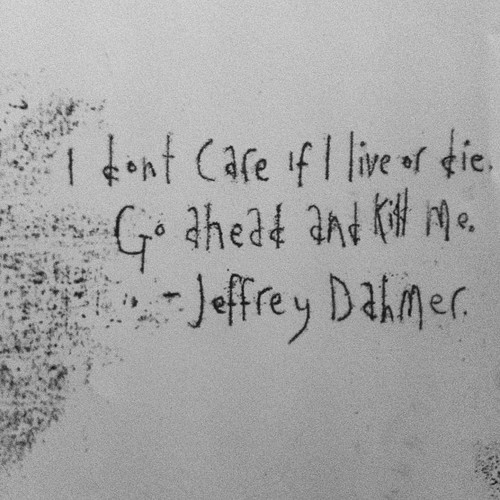 I dont Care if I live or die.
Go ahead and Kill Me.
- Jeffrey Dahmer.